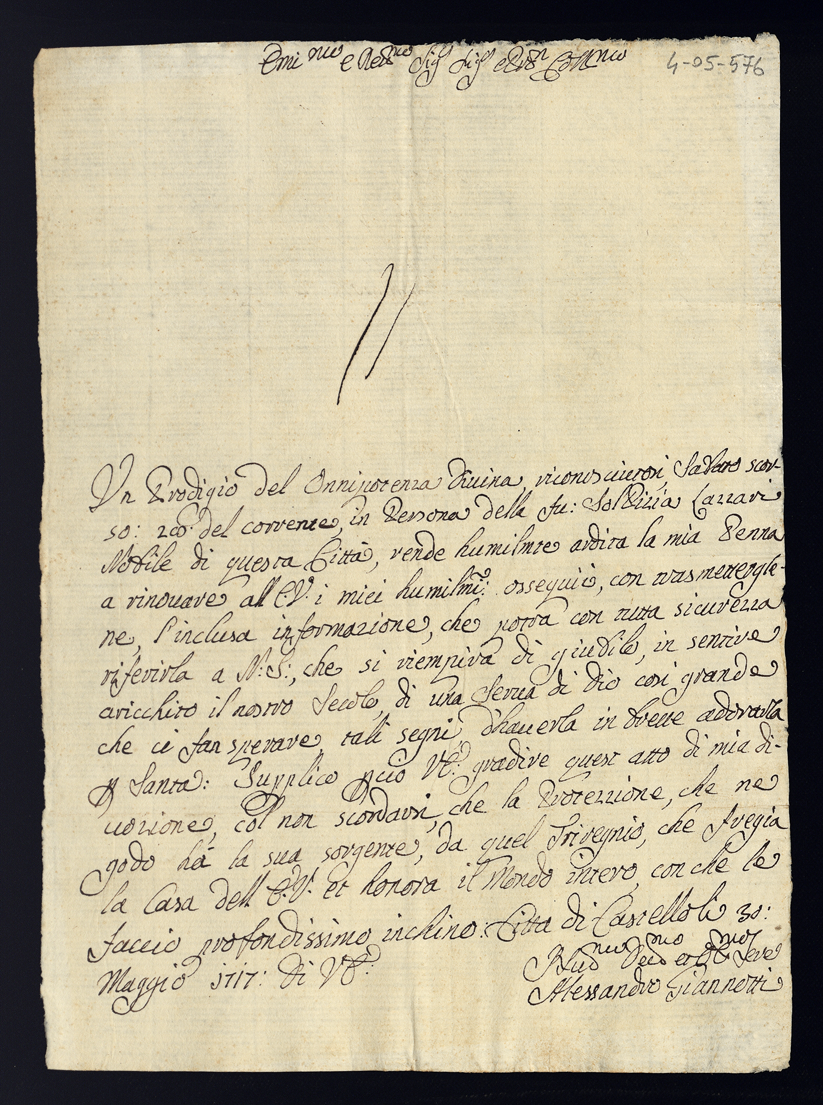 Emi.mo e Rev.mo Sig.r Sig.r e Pron Coll.mo
4-05-576
Un Prodigio del Onnipotenza Diuina, riconosciutosi, Sabato scor-
so: 29: del corrente, in Persona della fu: Lazzari
Nobile di questa Città, rende humilmte ardita la mia Penna
a rinouare all E.V. i miei humilmi: ossequii, con trasmettergle-
ne, l'inclusa informazione, che potrà con tutta sicurezza
riferirla a N: S:, che si riempirà di giudilo, in sentire
aricchito il nostro Secolo, di una Serua di Dio così grande
che ci fan sperare, tali segni, d'hauerla in breue adorarla
p Santa: Supplico pciò VE: gradire quest atto di mia di-
uozione, col non scordarsi, che la Protezzione, che ne
godo hà la sua sorgente, da quel Triregnio, che fregia
la Casa dell E.V. et honora il Mondo intero, con che le
faccio profondissimo inchino: Citta di Castello li 30:
Maggio 1717: di VE:
Hu.mo Deu.mo et Obl.mo Sere
Alessandro Giannotti